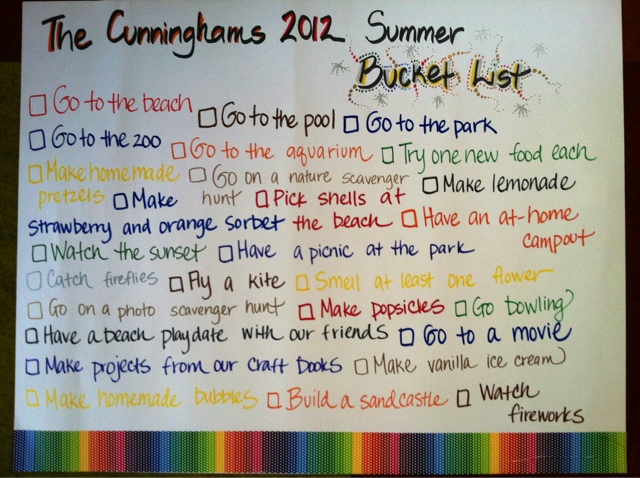 The Cunninghams 2012 Summer
Bucket List
□ Go to the beach □ Go to the pool □ Go to the park
□ Go to the zoo □ Go to the aquarium □ Try one new food each
□ Make homemade □ Go on a nature scavenger □ Make lemonade
pretzels □ Make hunt □ Pick shells at
strawberry and orange sorbet the beach □ Have an at-home
campout
□ Watch the sunset □ Have a picnic at the park
□ Catch fireflies □ Fly a kite □ Smell at least one flower
□ Go on a photo scavenger hunt □ Make popsicles □ Go bowling
□ Have a beach playdate with our friends □ Go to a movie
□ Make projects from our craft books □ Make vanilla ice cream
□ Make homemade bubbles □ Build a sandcastle □ Watch
fireworks